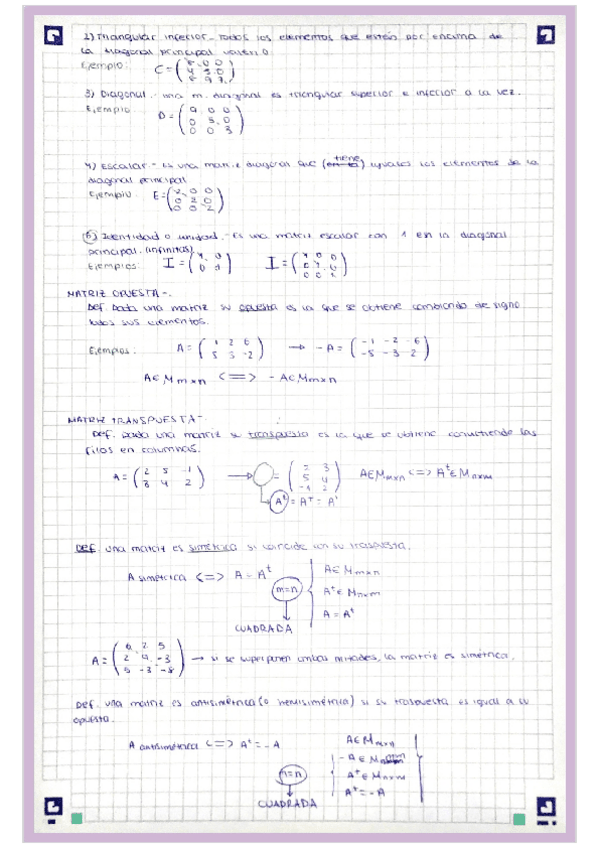 2) Triangular inferior.- Todos los elementos que estén por encima de
la diagonal principal valen 0.
Ejemplo: C = ( 0 0
4 3 0
9 )
3) Diagonal.- una m. diagonal es triangular superior e inferior a la vez.
Ejemplo: D = ( 9 0 0
0 5 0
0 0 3 )
4) Escalar.- Es una matriz diagonal que (tiene) iguales los elementos de la
diagonal principal
Ejemplo: E = ( 2 0 0
0 2 0
0 0 2 )
5) Identidad o unidad.- Es una matriz escalar con 1 en la diagonal
principal. (infinitas)
Ejemplos: I = ( 1 0
0 1 ) I = ( 1 0 0
0 1 0
0 0 1 )
MATRIZ OPUESTA-.
Def. Dada una matriz su opuesta es la que se obtiene cambiando de signo
todos sus elementos.
Ejemplos: A = ( 1 2 6
5 3 -2 ) → -A = ( -1 -2 -6
-5 -3 2 )
A∈Mmxn <=> -A∈Mmxn
MATRIZ TRANSPUESTA-
Def. Dada una matriz su transpuesta es la que se obtiene convirtiendo las
filas en columnas.
A = ( 2 5 -1
3 4 2 ) → = ( 2 3
5 4
-1 2 ) A∈Mmxn <=> Aᵗ∈Mnxm
Aᵗ = Aᵀ = A'
Def. una matriz es simétrica si coincide con su traspuesta.
A simétrica <=> A = Aᵗ
m=n
CUADRADA
A∈Mmxn
Aᵗ∈Mnxm
A = Aᵗ
A = ( 6 2 5
2 9 -3
5 -3 -8 ) → si se superponen ambas mitades, la matriz es simétrica.
Def. una matriz es antisimétrica (o hemisimétrica) si su traspuesta es igual a su
opuesta.
A antisimétrica <=> Aᵗ = -A
m=n
CUADRADA
A∈Mmxn
-A∈Mmxn
Aᵗ∈Mnxm
Aᵗ = -A